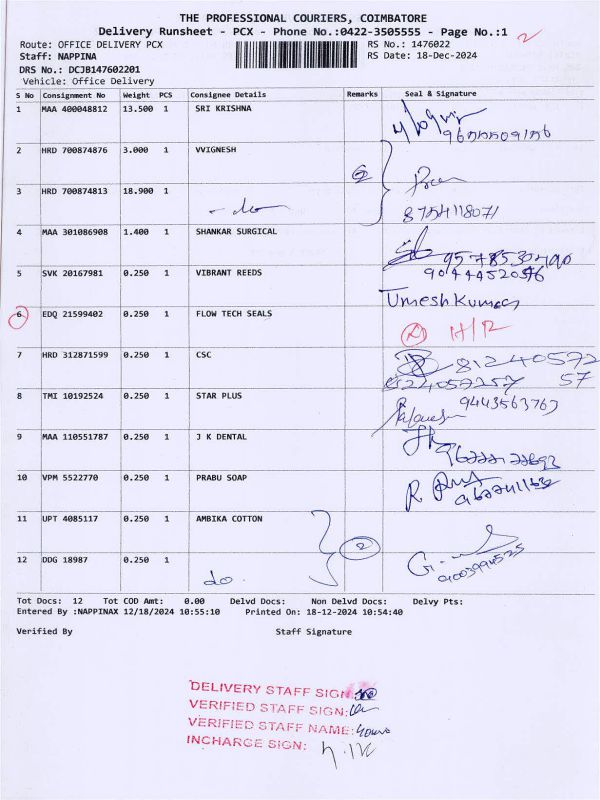 THE PROFESSIONAL COURIERS, COIMBATORE
Delivery Runsheet - PCX - Phone No.:0422-3505555 - Page No.:1
2
Route: OFFICE DELIVERY PCX RS No.: 1476022
Staff: NAPPINA RS Date: 18-Dec-2024
DRS No.: DCJB147602201
Vehicle: Office Delivery
S No Consignment No Weight PCS Consignee Details Remarks Seal & Signature
1 MAA 400048812 13.500 1 SRI KRISHNA
2 HRD 700874876 3.000 1 VVIGNESH
3 HRD 700874813 18.900 1
- do 8754118071
4 MAA 301086908 1.400 1 SHANKAR SURGICAL
5 SVK 20167981 0.250 1 VIBRANT REEDS
Umesh Kumar
6 EDQ 21599402 0.250 1 FLOW TECH SEALS
7 HRD 312871599 0.250 1 CSC
8 TMI 10192524 0.250 1 STAR PLUS 9443563763
9 MAA 110551787 0.250 1 J K DENTAL
10 VPM 5522770 0.250 1 PRABU SOAP
11 UPT 4085117 0.250 1 AMBIKA COTTON
2
12 DDG 18987 0.250 1
do 9003994525
Tot Docs: 12 Tot COD Amt: 0.00 Delvd Docs: Non Delvd Docs: Delvy Pts:
Entered By :NAPPINAX 12/18/2024 10:55:10 Printed On: 18-12-2024 10:54:40
Verified By Staff Signature
DELIVERY STAFF SIGN:
VERIFIED STAFF SIGN:
VERIFIED STAFF NAME:
INCHARGE SIGN: